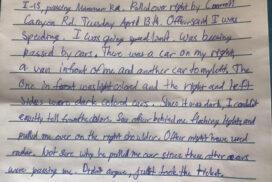 I-15, passing Mission Rd. Pulled over right by
Canyon Rd. Tuesday April 13th. Officer said I was
Speeding. I was going speed limit. Was being
passed by cars. There was a car on my right,
a van in front of me and another car to my left. The
one in front was light colored and the right and left
sides were dark colored cars. Since it was dark, I couldn't
exactly tell the colors. Saw officer behind me flashing lights and
pulled me over on the right shoulder. Officer might have used
radar. Not sure why he pulled me over since there other cars
were passing me. Didn't argue, just took the ticket.